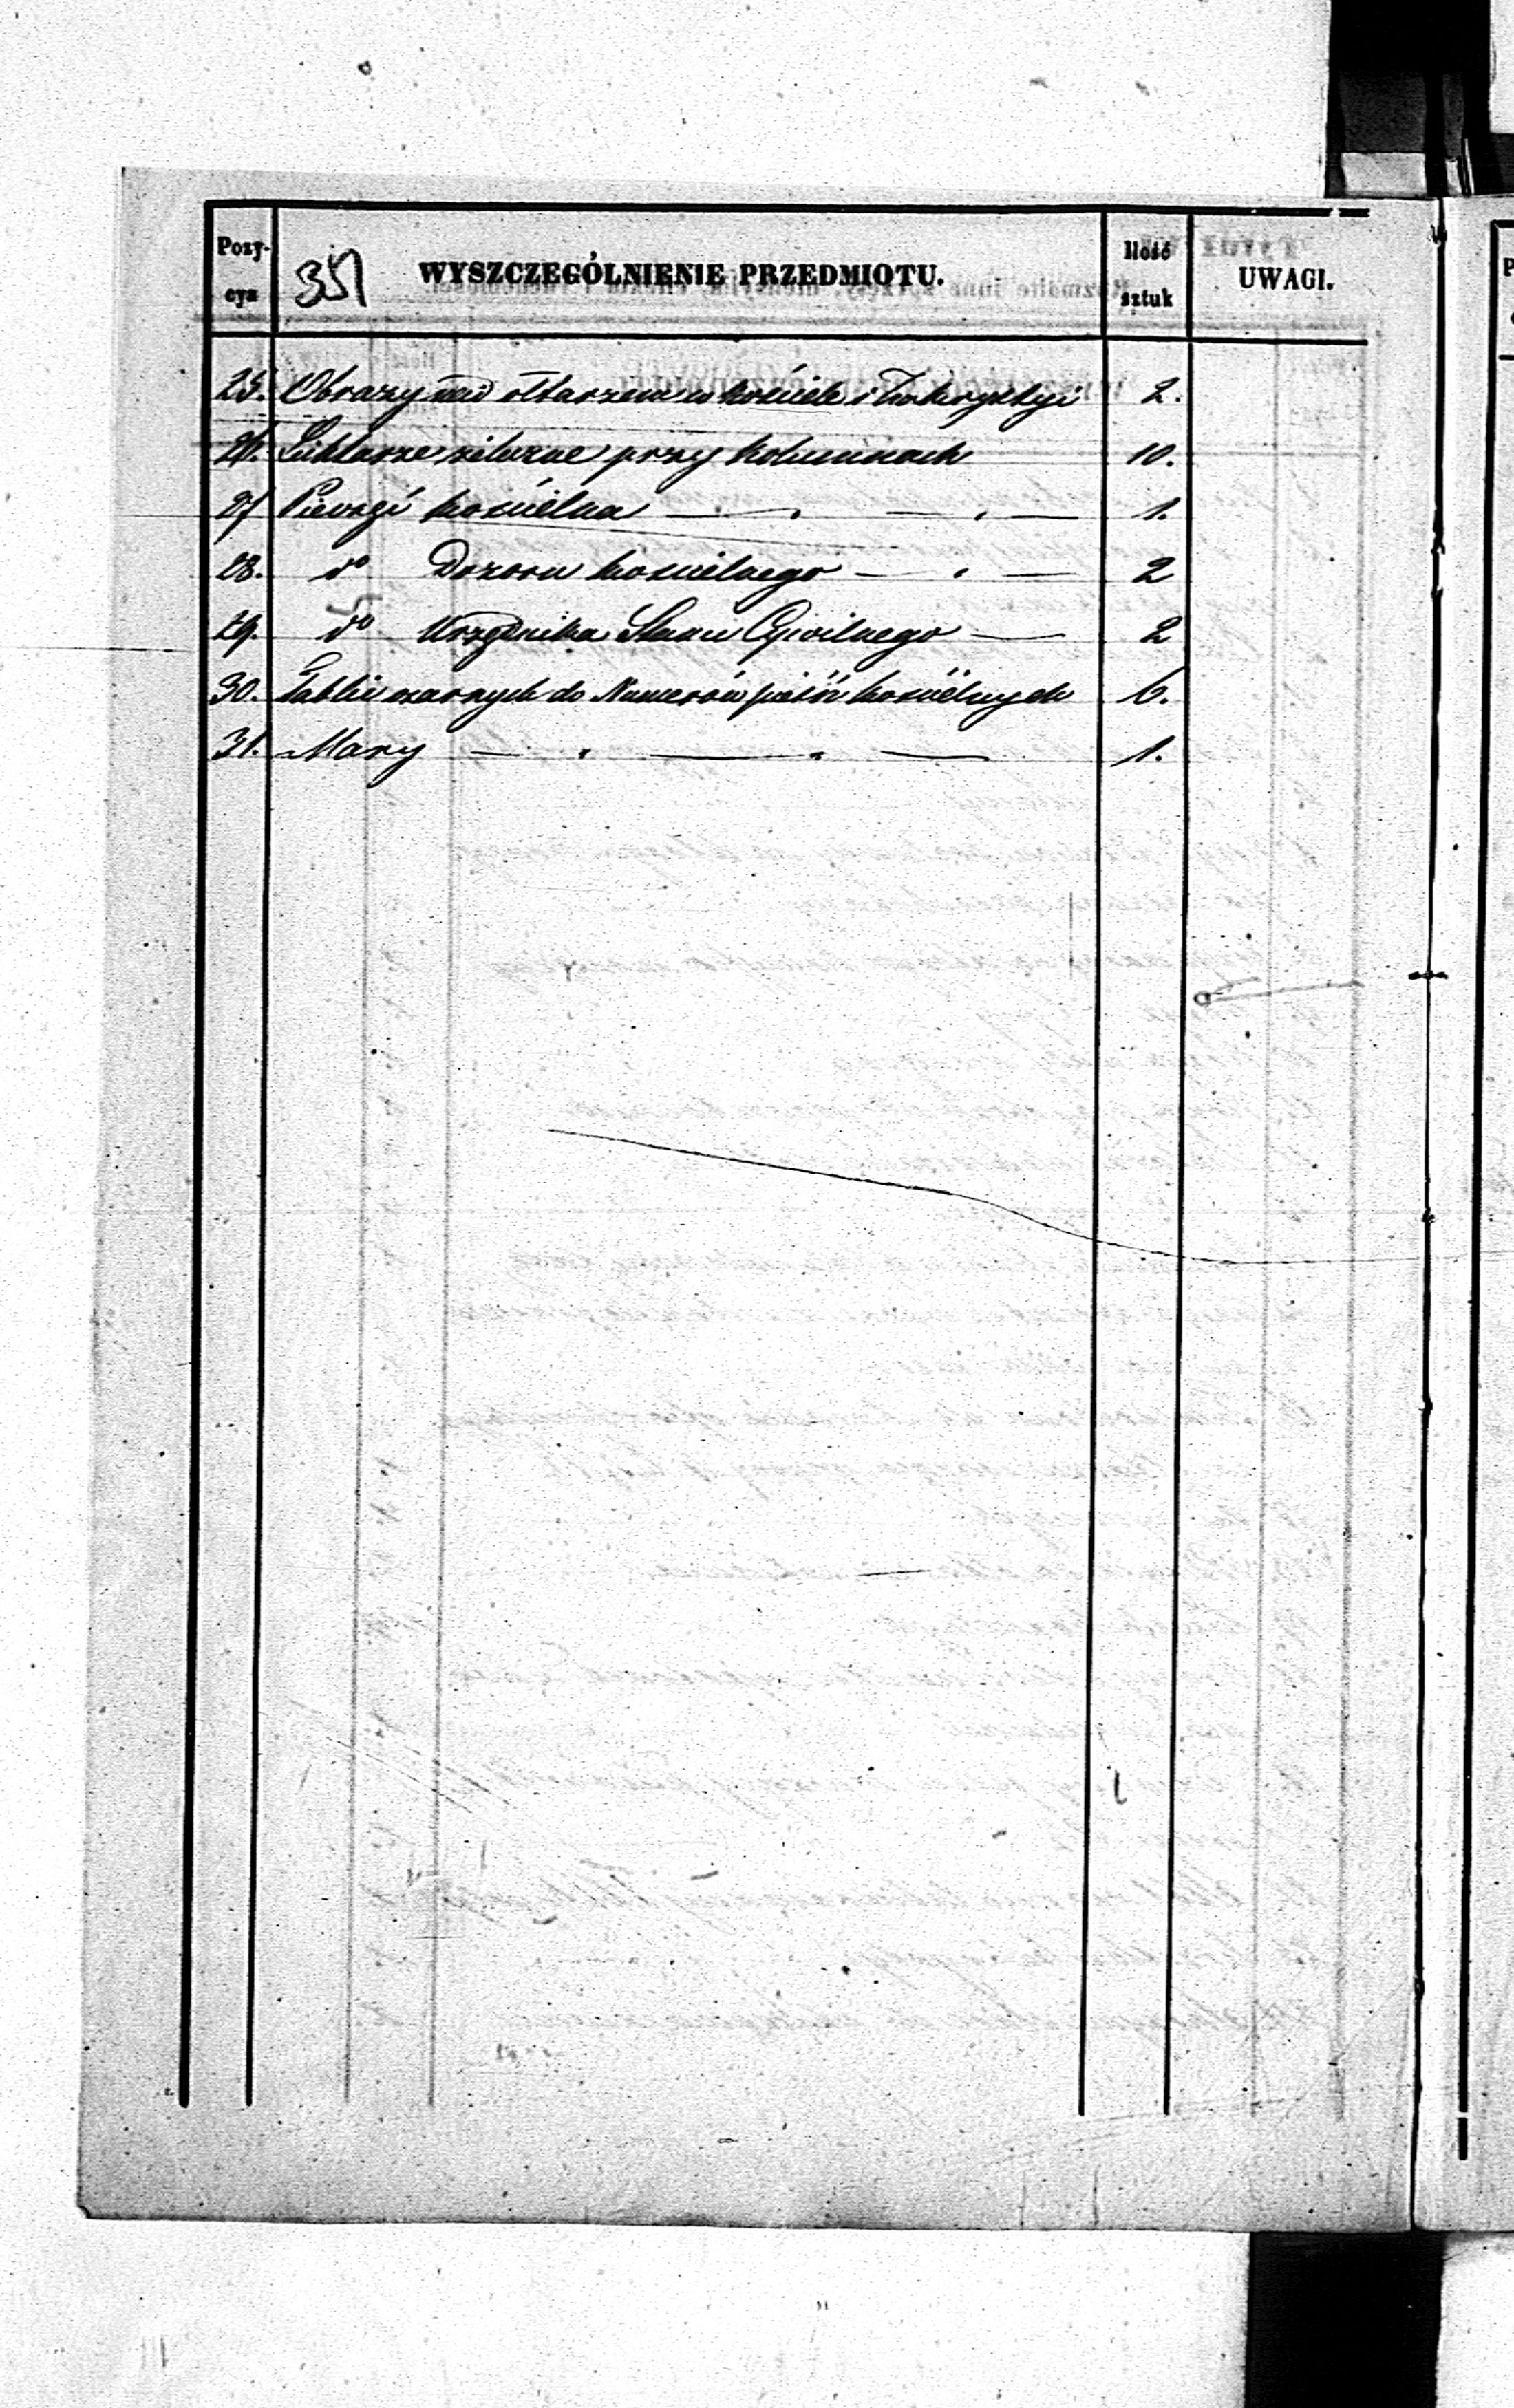 Pozycya 351 WYSZCZEGÓLNIENIE PRZEDMIOTU. Ilość sztuk UWAGI.
25. Obrazy nad ołtarzem w kościele i Zakrystyi 2.
26. Lichtarze żelazne przy kolumnach 10.
27 Pieczęć kościelna — " — " — 1.
28. do Dozoru kościelnego — " — 2
29. do Urzędnika Stanu Cywilnego — 2
30. Tablic czarnych do Numerów pieśń kościelnych 6.
31. Mary — " — " — 1.